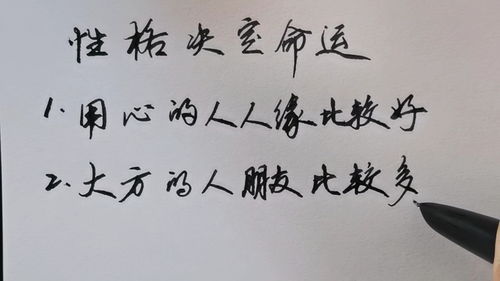 性格决定命运
1.用心的人人缘比较好
2.大方的人朋友比较多